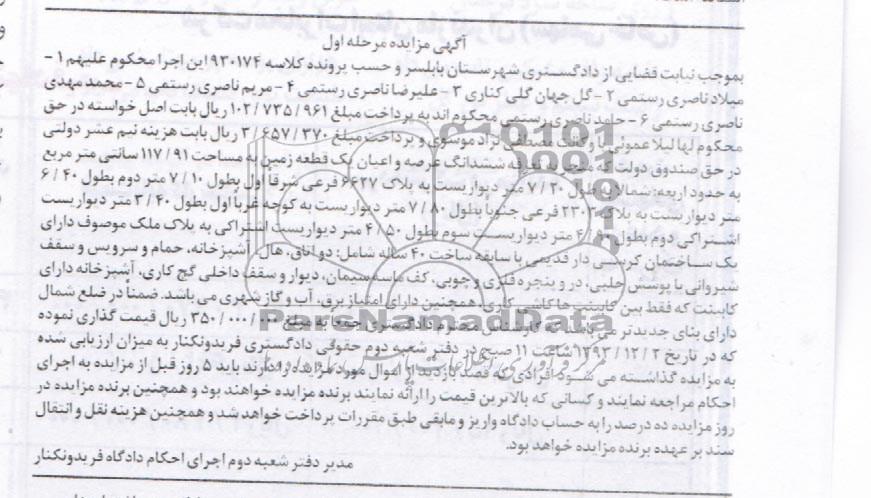 آگهی مزایده مرحله اول
بموجب نیابت قضایی از دادگستری شهرستان بابلسر و حسب پرونده کلاسه ۹۳۰۱۷۴ این اجرا محکوم علیهم ۱ -
میلاد ناصری رستمی ۲ - گل جهان گلی کناری ۳ - علیرضا ناصری رستمی ۴ - مریم ناصری رستمی ۵ - محمد مهدی
ناصری رستمی ۶ - حامد ناصری رستمی محکوم اند به پرداخت مبلغ ۱۰۲/۷۳۵/۹۶۱ ریال بابت اصل خواسته در حق
محکوم لها لیلا عموئی با وکالت مصطفی نژاد موسوی و پرداخت مبلغ ۳/۶۵۷/۳۷۰ ریال بابت هزینه نیم عشر دولتی
در حق صندوق دولت که منجر به توقیف ششدانگ عرصه و اعیان یک قطعه زمین به مساحت ۱۱۷/۹۱ سانتی متر مربع
به حدود اربعه: شمالا بطول ۷/۲۰ متر دیواریست به پلاک ۶۶۲۷ فرعی شرقاً اول بطول ۷/۱۰ متر دوم بطول ۶/۴۰
متر دیواریست به پلاک ۲۳۰۳ فرعی جنوباً بطول ۷/۸۰ متر دیواریست به کوچه غرباً اول بطول ۳/۴۰ متر دیواریست
اشتراکی دوم بطول ۴/۹۰ متر دیواریست سوم بطول ۴/۵۰ متر دیواریست اشتراکی به پلاک ملک موصوف دارای
یک ساختمان کرسی دار قدیمی با سابقه ساخت ۴۰ ساله شامل: دو اتاق، هال، آشپزخانه، حمام و سرویس و سقف
شیروانی با پوشش حلبی، در و پنجره فلزی و چوبی، کف ماسه سیمان، دیوار و سقف داخلی گچ کاری، آشپزخانه دارای
کابینت که فقط بین کابینت ها کاشی کاری، همچنین دارای امتیاز برق، آب و گاز شهری می باشد. ضمناً در ضلع شمال
دارای بنای جدیدتر می باشند که کارشناس محترم دادگستری جمعاً به مبلغ ۳۵۰/۰۰۰/۰۰۰ ریال قیمت گذاری نموده
که در تاریخ ۱۳۹۳/۱۲/۲ ساعت ۱۱ صبح در دفتر شعبه دوم حقوقی دادگستری فریدونکنار به میزان ارزیابی شده
به مزایده گذاشته می شود افرادی که قصد بازدید از اموال مورد مزایده را دارند باید ۵ روز قبل از مزایده به اجرای
احکام مراجعه نمایند و کسانی که بالاترین قیمت را ارائه نمایند برنده مزایده خواهند بود و همچنین برنده مزایده در
روز مزایده ده درصد را به حساب دادگاه واریز و مابقی طبق مقررات پرداخت خواهد شد و همچنین هزینه نقل و انتقال
سند بر عهده برنده مزایده خواهد بود.
مدیر دفتر شعبه دوم اجرای احکام دادگاه فریدونکنار
ParsNamadData